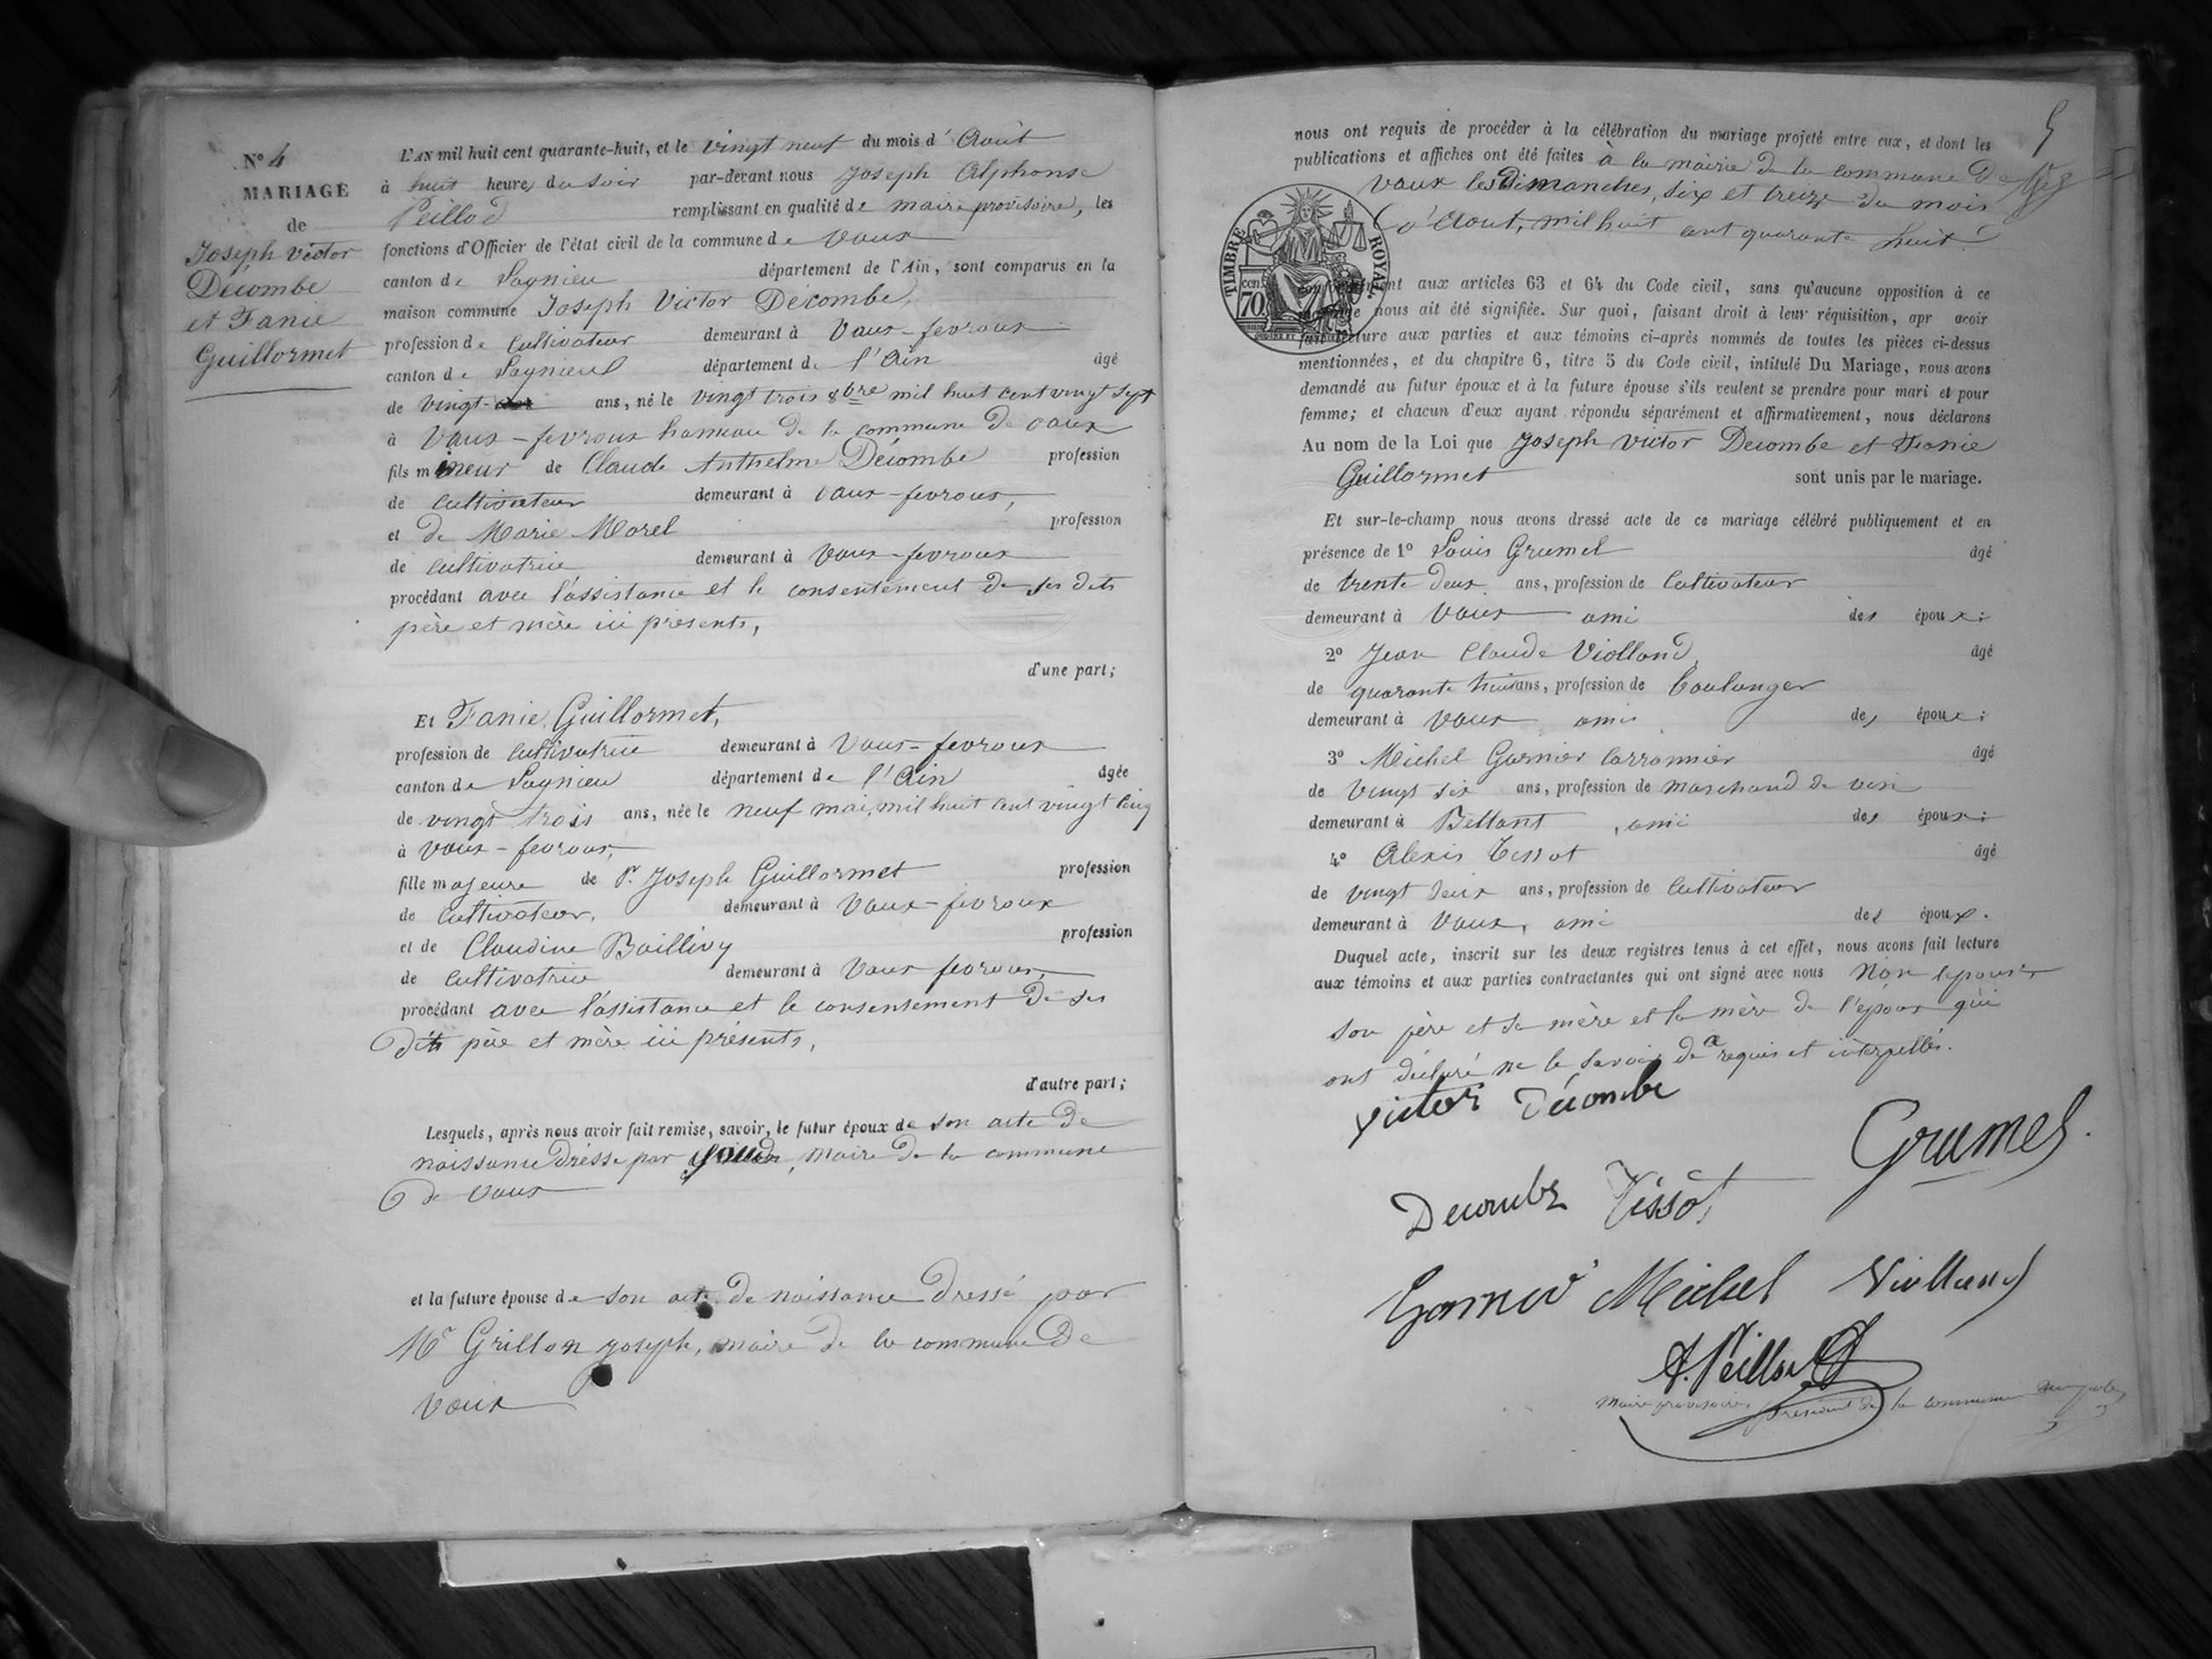 N° 4
MARIAGE
de
Joseph Victor
Décombe
et Fanie
Guillermet
L'AN mil huit cent quarante-huit, et le vingt neuf du mois d'Août
à huit heures du soir par-devant nous Joseph Alphonse
Peillod remplissant en qualité de maire provisoire, les
fonctions d'Officier de l'état civil de la commune de Vaux
canton de Lagnieu département de l'Ain, sont comparus en la
maison commune Joseph Victor Décombe,
profession de Cultivateur demeurant à Vaux-fevroux
canton de Lagnieu département de l'Ain âgé
de vingt ans, né le vingt trois 8bre mil huit cent vingt sept
à Vaux-fevroux hameau de la commune de Vaux
fils mineur de Claude Anthelme Décombe profession
de Cultivateur demeurant à Vaux-fevroux,
et de Marie Morel profession
de Cultivatrice demeurant à Vaux-fevroux
procédant avec l'assistance et le consentement de ses dits
père et mère ici présents,
d'une part;
Et Fanie Guillermet,
profession de Cultivatrice demeurant à Vaux-fevroux
canton de Lagnieu département de l'Ain âgée
de vingt trois ans, née le neuf mai, mil huit cent vingt cinq
à Vaux-fevroux,
fille majeure de Sr Joseph Guillermet profession
de Cultivateur, demeurant à Vaux-fevroux
et de Claudine Baillivy profession
de Cultivatrice demeurant à Vaux fevroux,
procédant avec l'assistance et le consentement de ses
dits père et mère ici présents,
d'autre part;
Lesquels, après nous avoir fait remise, savoir, le futur époux de son acte de
naissance dressé par , maire de la commune
de Vaux
et la future épouse de son acte de naissance dressé par
Mr Grillon Joseph, maire de la commune de
Vaux
5
nous ont requis de procéder à la célébration du mariage projeté entre eux, et dont les
publications et affiches ont été faites à la mairie de la commune de
Vaux les dimanches, six et treize du mois
d'Août, mil huit cent quarante huit
TIMBRE ROYAL
cen. 70
aux articles 63 et 64 du Code civil, sans qu'aucune opposition à ce
nous ait été signifiée. Sur quoi, faisant droit à leur réquisition, apr avoir
fait lecture aux parties et aux témoins ci-après nommés de toutes les pièces ci-dessus
mentionnées, et du chapitre 6, titre 5 du Code civil, intitulé Du Mariage, nous avons
demandé au futur époux et à la future épouse s'ils veulent se prendre pour mari et pour
femme; et chacun d'eux ayant répondu séparément et affirmativement, nous déclarons
Au nom de la Loi que Joseph Victor Decombe et Fanie
Guillermet sont unis par le mariage.
Et sur-le-champ nous avons dressé acte de ce mariage célébré publiquement et en
présence de 1° Louis Grumel âgé
de trente deux ans, profession de Cultivateur
demeurant à Vaux ami des époux;
2° Jean Claude Violland, âgé
de quarante huit ans, profession de boulanger
demeurant à Vaux ami des époux;
3° Michel Garnier Carronnier âgé
de vingt six ans, profession de marchand de vin
demeurant à Bettant, ami des époux;
4° Alexis Tissot âgé
de vingt deux ans, profession de Cultivateur
demeurant à Vaux, ami des époux.
Duquel acte, inscrit sur les deux registres tenus à cet effet, nous avons fait lecture
aux témoins et aux parties contractantes qui ont signé avec nous Non l'épouse
son père et sa mère et la mère de l'époux qui
ont déclaré ne le savoir de ce requis et interpellés.
Victor Décombe
Grumel
Decombe Tissot
Garnier Michel Violland
A. Peillod
Maire provisoire, président de la commission